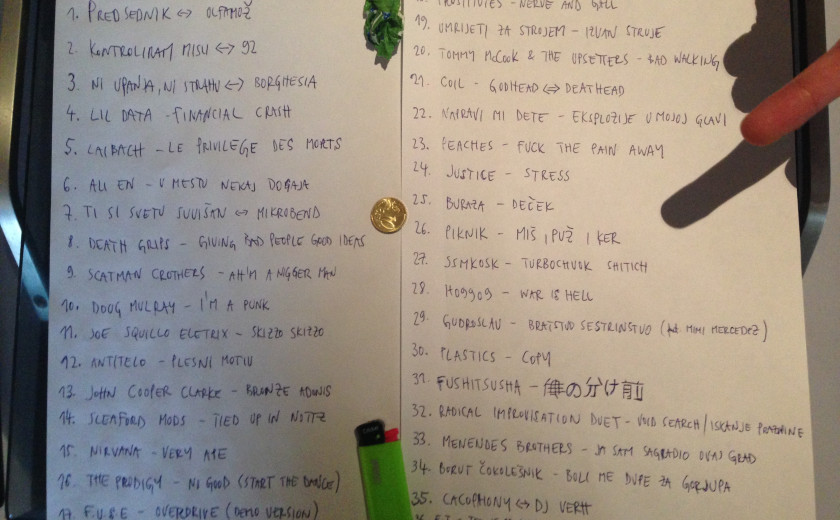 1. PREDSEDNIK <-> OLFAMOŽ
2. KONTROLIRATI MISLI <-> 92
3. NI UPANJA, NI STRAHU <-> BORGHESIA
4. LIL DATA - FINANCIAL CRASH
5. LAIBACH - LE PRIVILEGE DES MORTS
6. ALI EN - V MESTU NEKAJ DOGAJA
7. TI SI SVETU SUVIŠAN <-> MIKROBEND
8. DEATH GRIPS - GIVING BAD PEOPLE GOOD IDEAS
9. SCATMAN CROTHERS - AH'M A NIGGER MAN
10. DOUG MULRAY - I'M A PUNK
11. JOE SQUILLO ELETRIX - SKIZZO SKIZZO
12. ANTITELO - PLESNI MOTIV
13. JOHN COOPER CLARKE - BRONZE ADONIS
14. SLEAFORD MODS - TIED UP IN NOTTZ
15. NIRVANA - VERY APE
16. THE PRODIGY - NO GOOD (START THE DANCE)
17. F.U.S.E - OVERDRIVE (DEMO VERSION)
PROSTITUTES - NERVE AND GALL
19. UMRIJETI ZA STROJEM - IZVAN STRUJE
20. TOMMY McCOOK & THE UPSETTERS - BAD WALKING
21. COIL - GODHEAD <=> DEATHEAD
22. NAPRAVI MI DETE - EKSPLOZIJE U MOJOJ GLAVI
23. PEACHES - FUCK THE PAIN AWAY
24. JUSTICE - STRESS
25. BURAZA - DEČEK
26. PIKNIK - MIŠ, PUŽ I KER
27. SSMKOSK - TURBOCHUCK SHITICH
28. HO99O9 - WAR IS HELL
29. GUDROSLAV - BRATSTVO SESTRINSTVO (ft MIMI MERCEDEZ)
30. PLASTICS - COPY
31. FUSHITSUSHA - 俺の分け前
32. RADICAL IMPROVISATION DUET - VOID SEARCH / ISKANJE PRAZNINE
33. MENENDES BROTHERS - JA SAM SAGRADIO OVAJ GRAD
34. BORUT ČOKOLEŠNIK - BOLI ME DUPE ZA GORJUPA
35. CACOPHONY <-> DJ VERH